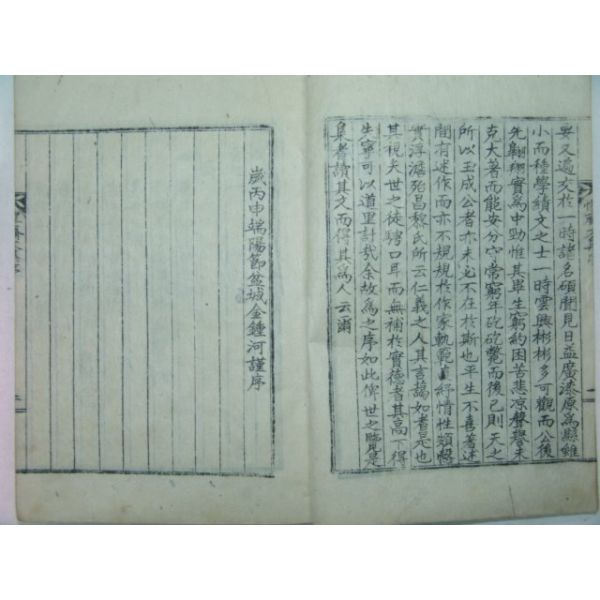 又過交於一時諸名碩聞見日益廣漆原爲縣雖
小而種學績文之士一時雲興彬彬多可觀而公後
先翱翔實爲中勁惟其畢生窮約困苦悲凉聲譽未
克大著而能安分守常窮年矻矻斃而後已則天之
所以玉成公者亦未必不在於斯也平生不喜著述
間有述作而亦不規規於作家軌範紓情性類
實浮滋昌黎氏所云仁義之人其言藹如者是也
其視夫世之徒騁口耳而無補於實德者其高下得
失寧可以道里計哉余故爲之序如此俾世之是
集者讀其文而得其爲人云爾
歲丙申端陽節盆城金鍾河謹序